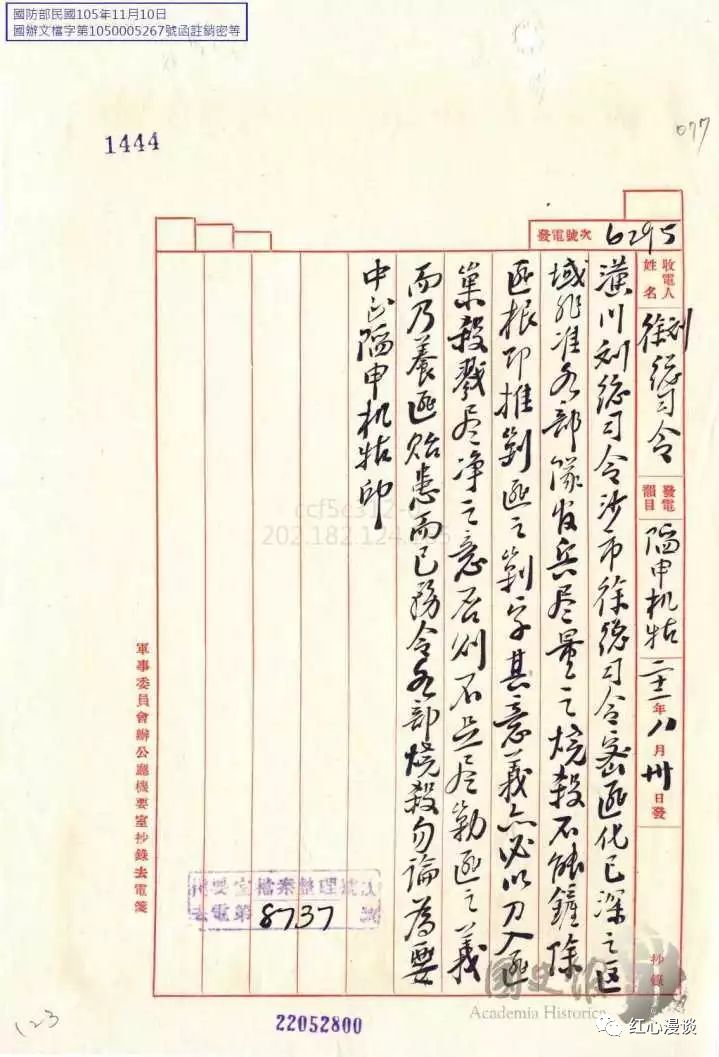 國防部民國105年11月10日
國辦文檔字第1050005267號函註銷密等
1444
077
發電號次 6295
收電人姓名 劉徐總司令 發電韻目 陷申机牯 二十一年八月卅日發 抄錄
潢川刘總司令沙市徐總司令密匪化已深之區
域非准各部隊發兵尽量之燒殺不能鏟除
匪根即推剿匪之剿字其意義亦必以刀入匪
巢殺戮尽净之意否则不足尽勦匪之義
而乃養匪贻患而已務令各部燒殺勿論為要
中正陷申机牯印
軍事委員會辦公廳機要室抄錄去電箋
機要室檔案整理號次
去電第 8737 號
ccf5c312-
202.182.124.
國史館
Academia Historica
红心漫谈
22052800
123